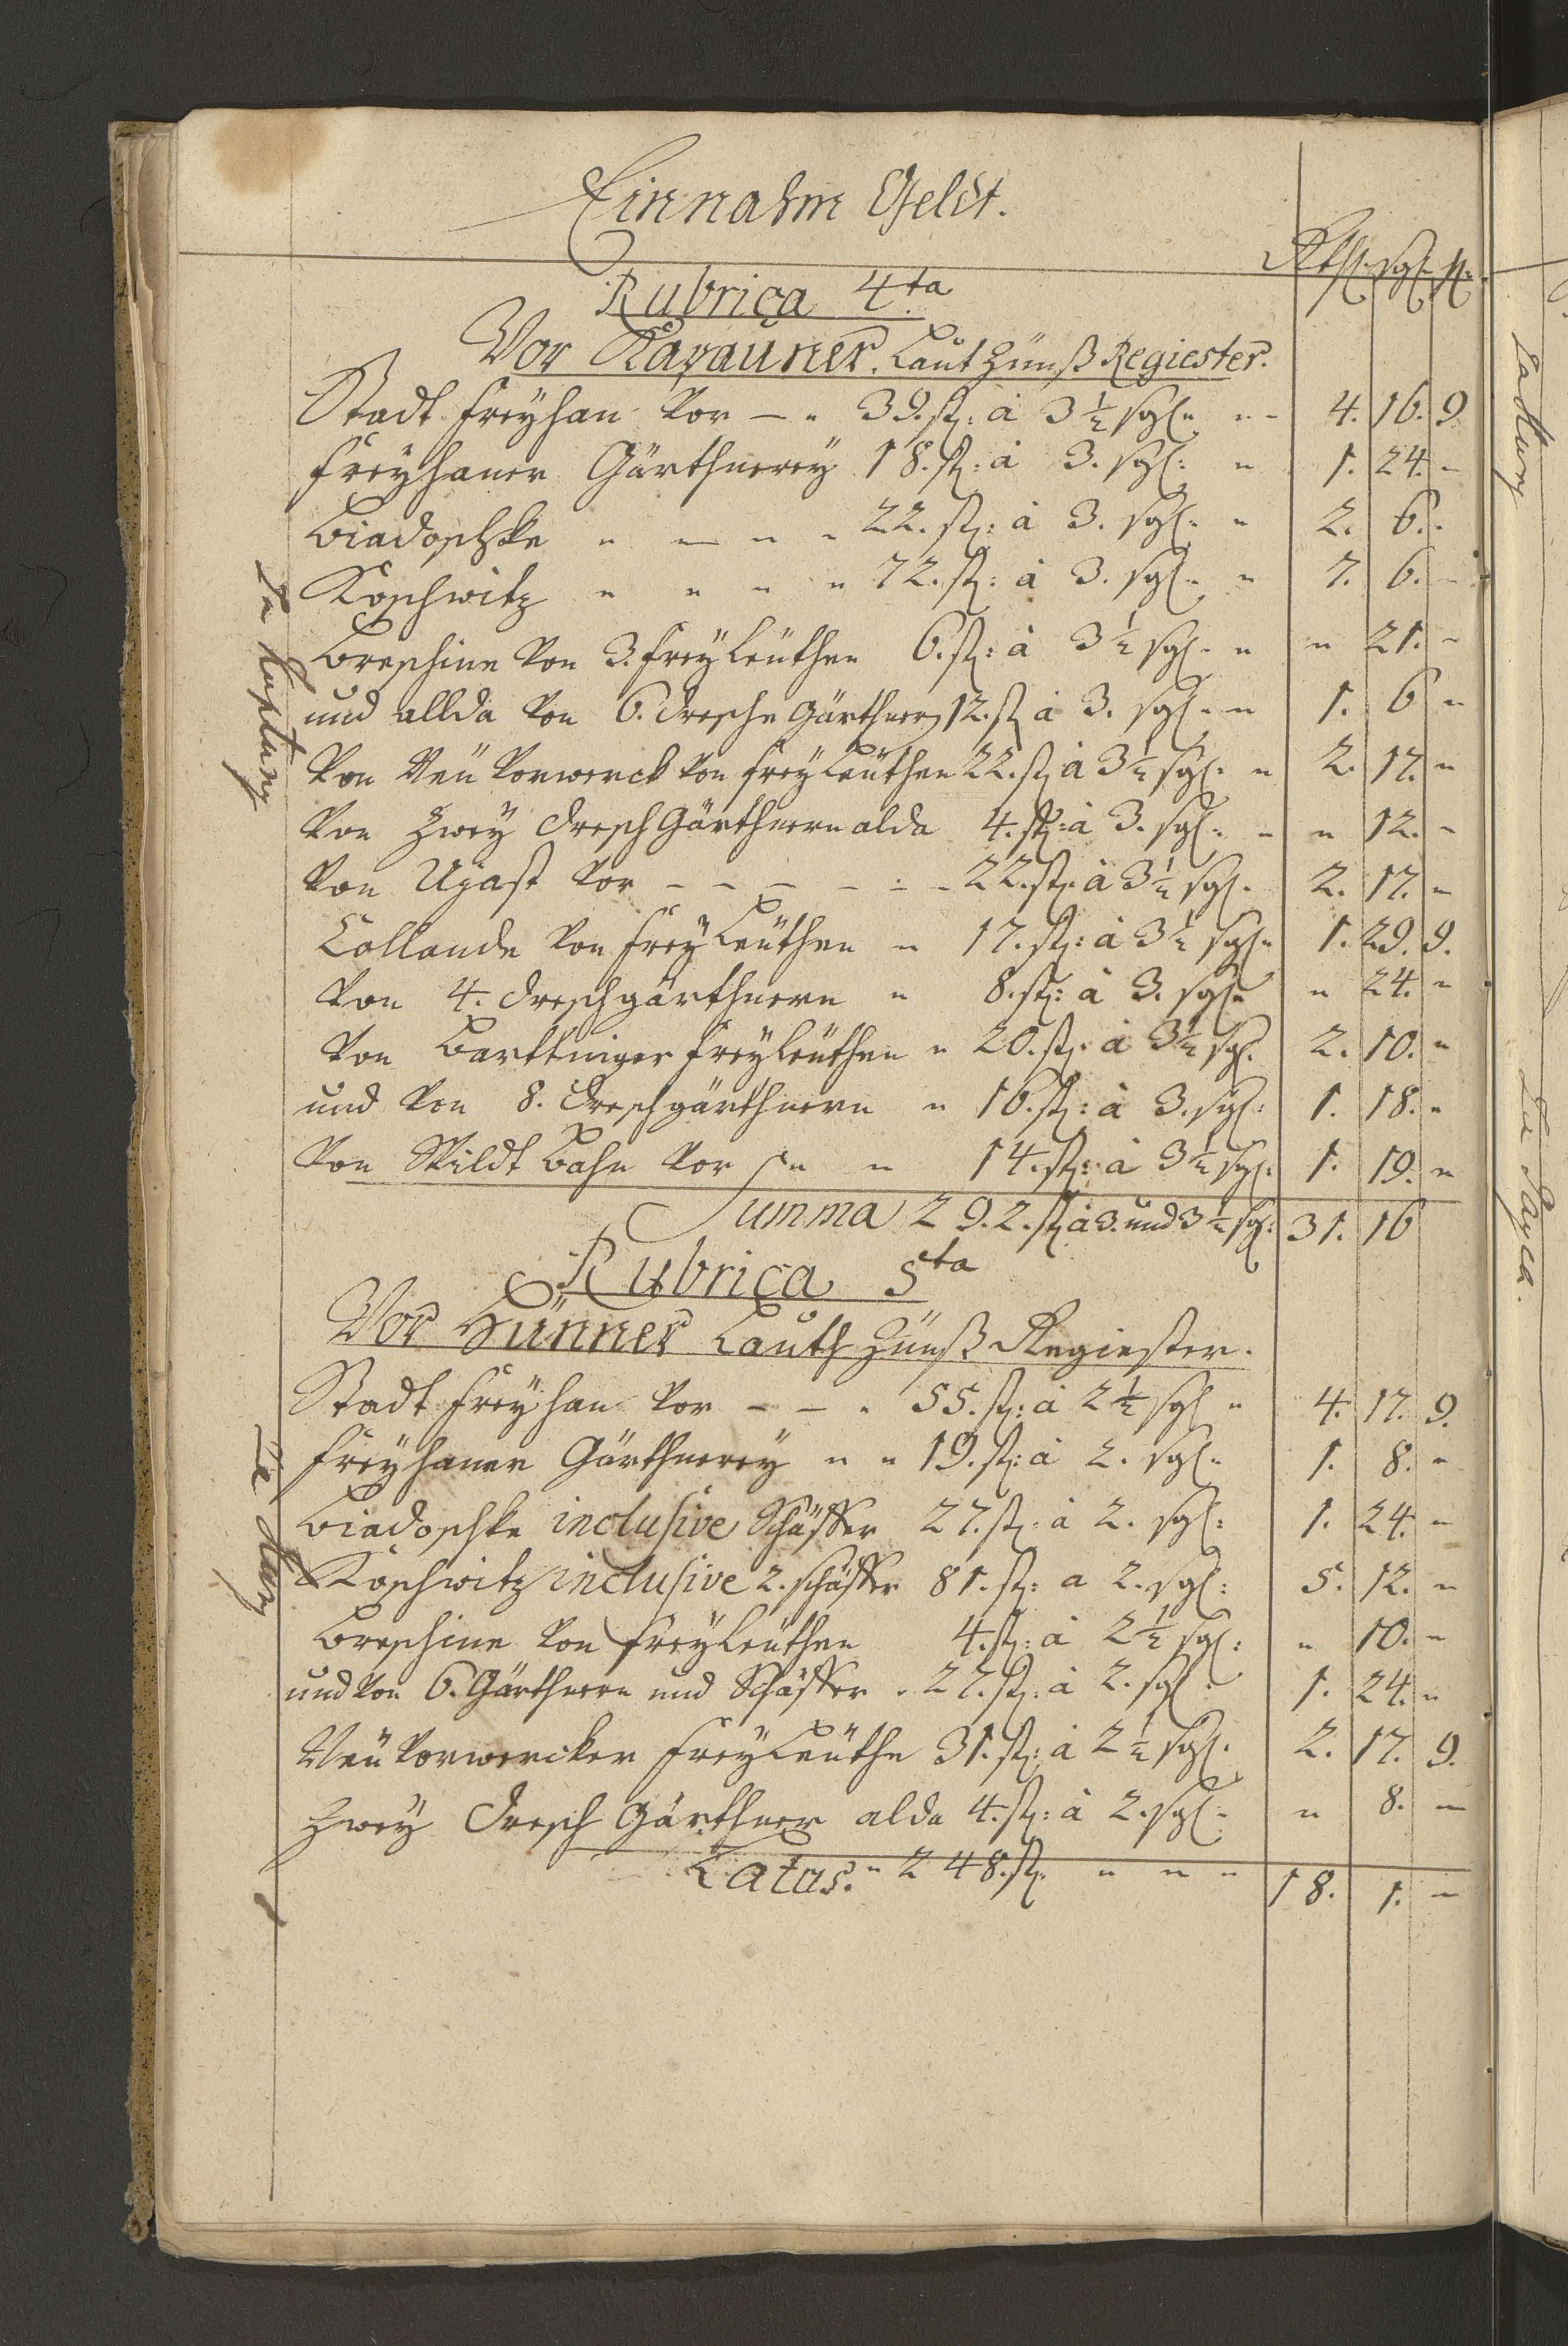 Einnahm Geldt.
Rthl. sgl. h.
Rubrica 4.ta
Vor Kapauner. Laut Zünß Regiester.
Stadt Freyhan vor — " 39. st: à 3½ sgl " " - 4. 16. 9
Freyhaner Gärthnerey 18. st: à 3. sgl: " 1. 24. -
Biadoschke " — " " 22. st: à 3. sgl. " 2. 6. -
Koschwitz " " " " 72. st: à 3. sgl. " 7. 6. -
Breschine von 3. Freyleüthen 6. st: à 3½ sgl. " " 21. -
und allda von 6. Dresche Gärthner 12. st à 3. sgl. - " 1. 6 "
Von Neü Vorwerck von Freyleüthen 22. st à 3½ sgl. " 2. 17. "
Von Zwey Dresch Gärthnern alda 4. st: à 3. sgl. " " 12. -
Von Ujast vor - - - - - - 22. st. à 3½ sgl. 2. 17. "
Collande von Freyleüthen " 17. st: à 3½ sgl " 1. 29. 9.
Von 4. Dreschgärthnern " 8. st: à 3. sgl " " 24. "
Von Barttniger Freyleüthen " 20. st. à 3½ sgl. 2. 10. "
und von 8. Dreschgärthnern " 16. st: à 3. sgl: 1. 18. "
Von Wildt Bahn vor " " 14. st: à 3½ sgl: 1. 19. "
Summa 292. st à 3. und 3½ sgl: 31. 16
Rubrica 5ta
Vor Hünner Lauth Zünß Regiester.
Stadt Freyhan vor - - . 55. st: à 2½ sgl " 4. 17. 9.
Freyhaner Gärthnerey " " 19. st: à 2. sgl. 1. 8. "
Biadoschke inclusive Schäffer 27. st: à 2. sgl: 1. 24. "
Koschwitz inclusive 2. schäffer 81. st: a 2. sgl: 5. 12. "
Breschine von Freyleüthen 4. st: à 2½ sgl: " 10. "
und von 6. Gärthnern und Schäffer . 27. st: à 2. sgl. 1. 24. "
Neü Vorwercker Freyleüthe 31. st: à 2½ sgl. 2. 17. 9.
Zwey Dresch Gärthner alda 4. st: à 2. sgl: " 8. "
Latus. " 248. st. " " " 18. 1. "